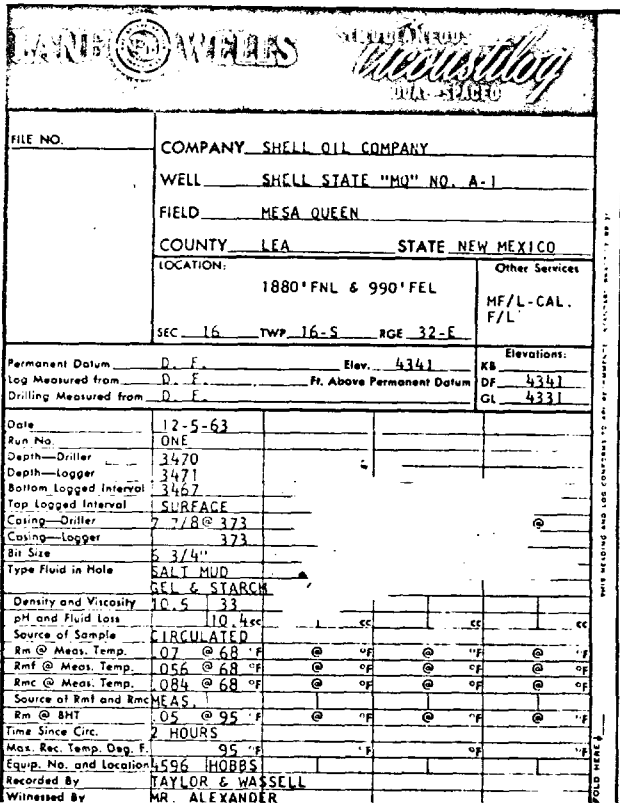 LANE WELLS
SIMULTANEOUS
Acoustilog
DUAL-SPACED
FILE NO.
COMPANY SHELL OIL COMPANY
WELL SHELL STATE "MQ" NO. A-1
FIELD MESA QUEEN
COUNTY LEA STATE NEW MEXICO
LOCATION:
1880'FNL & 990'FEL
SEC 16 TWP 16-S RGE 32-E
Other Services
MF/L-CAL.
F/L
Permanent Datum D. F. Elev. 4341
Log Measured from D. F. Ft. Above Permanent Datum
Drilling Measured from D. F.
Elevations:
KB
DF 4341
GL 4331
Date 12-5-63
Run No. ONE
Depth—Driller 3470
Depth—Logger 3471
Bottom Logged Interval 3467
Top Logged Interval SURFACE
Casing—Driller 7 7/8@ 373 @
Casing—Logger 373
Bit Size 6 3/4"
Type Fluid in Hole SALT MUD
GEL & STARCH
Density and Viscosity 10.5 33
pH and Fluid Loss 10.4cc cc cc cc
Source of Sample CIRCULATED
Rm @ Meas. Temp. .07 @ 68 °F @ °F @ °F @ °F
Rmf @ Meas. Temp. .056 @ 68 °F @ °F @ °F @ °F
Rmc @ Meas. Temp. .084 @ 68 °F @ °F @ °F @ °F
Source of Rmf and Rmc MEAS.
Rm @ BHT .05 @ 95 °F @ °F @ °F @ °F
Time Since Circ. 2 HOURS
Max. Rec. Temp. Deg. F. 95 °F °F °F °F
Equip. No. and Location 4596 HOBBS
Recorded By TAYLOR & WASSELL
Witnessed By MR. ALEXANDER
THIS HEADING AND LOG CONFORMS TO API
FOLD HERE